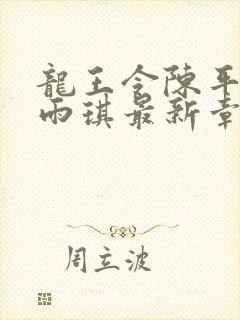 龍王令陳平
雨琪最新章
周立波